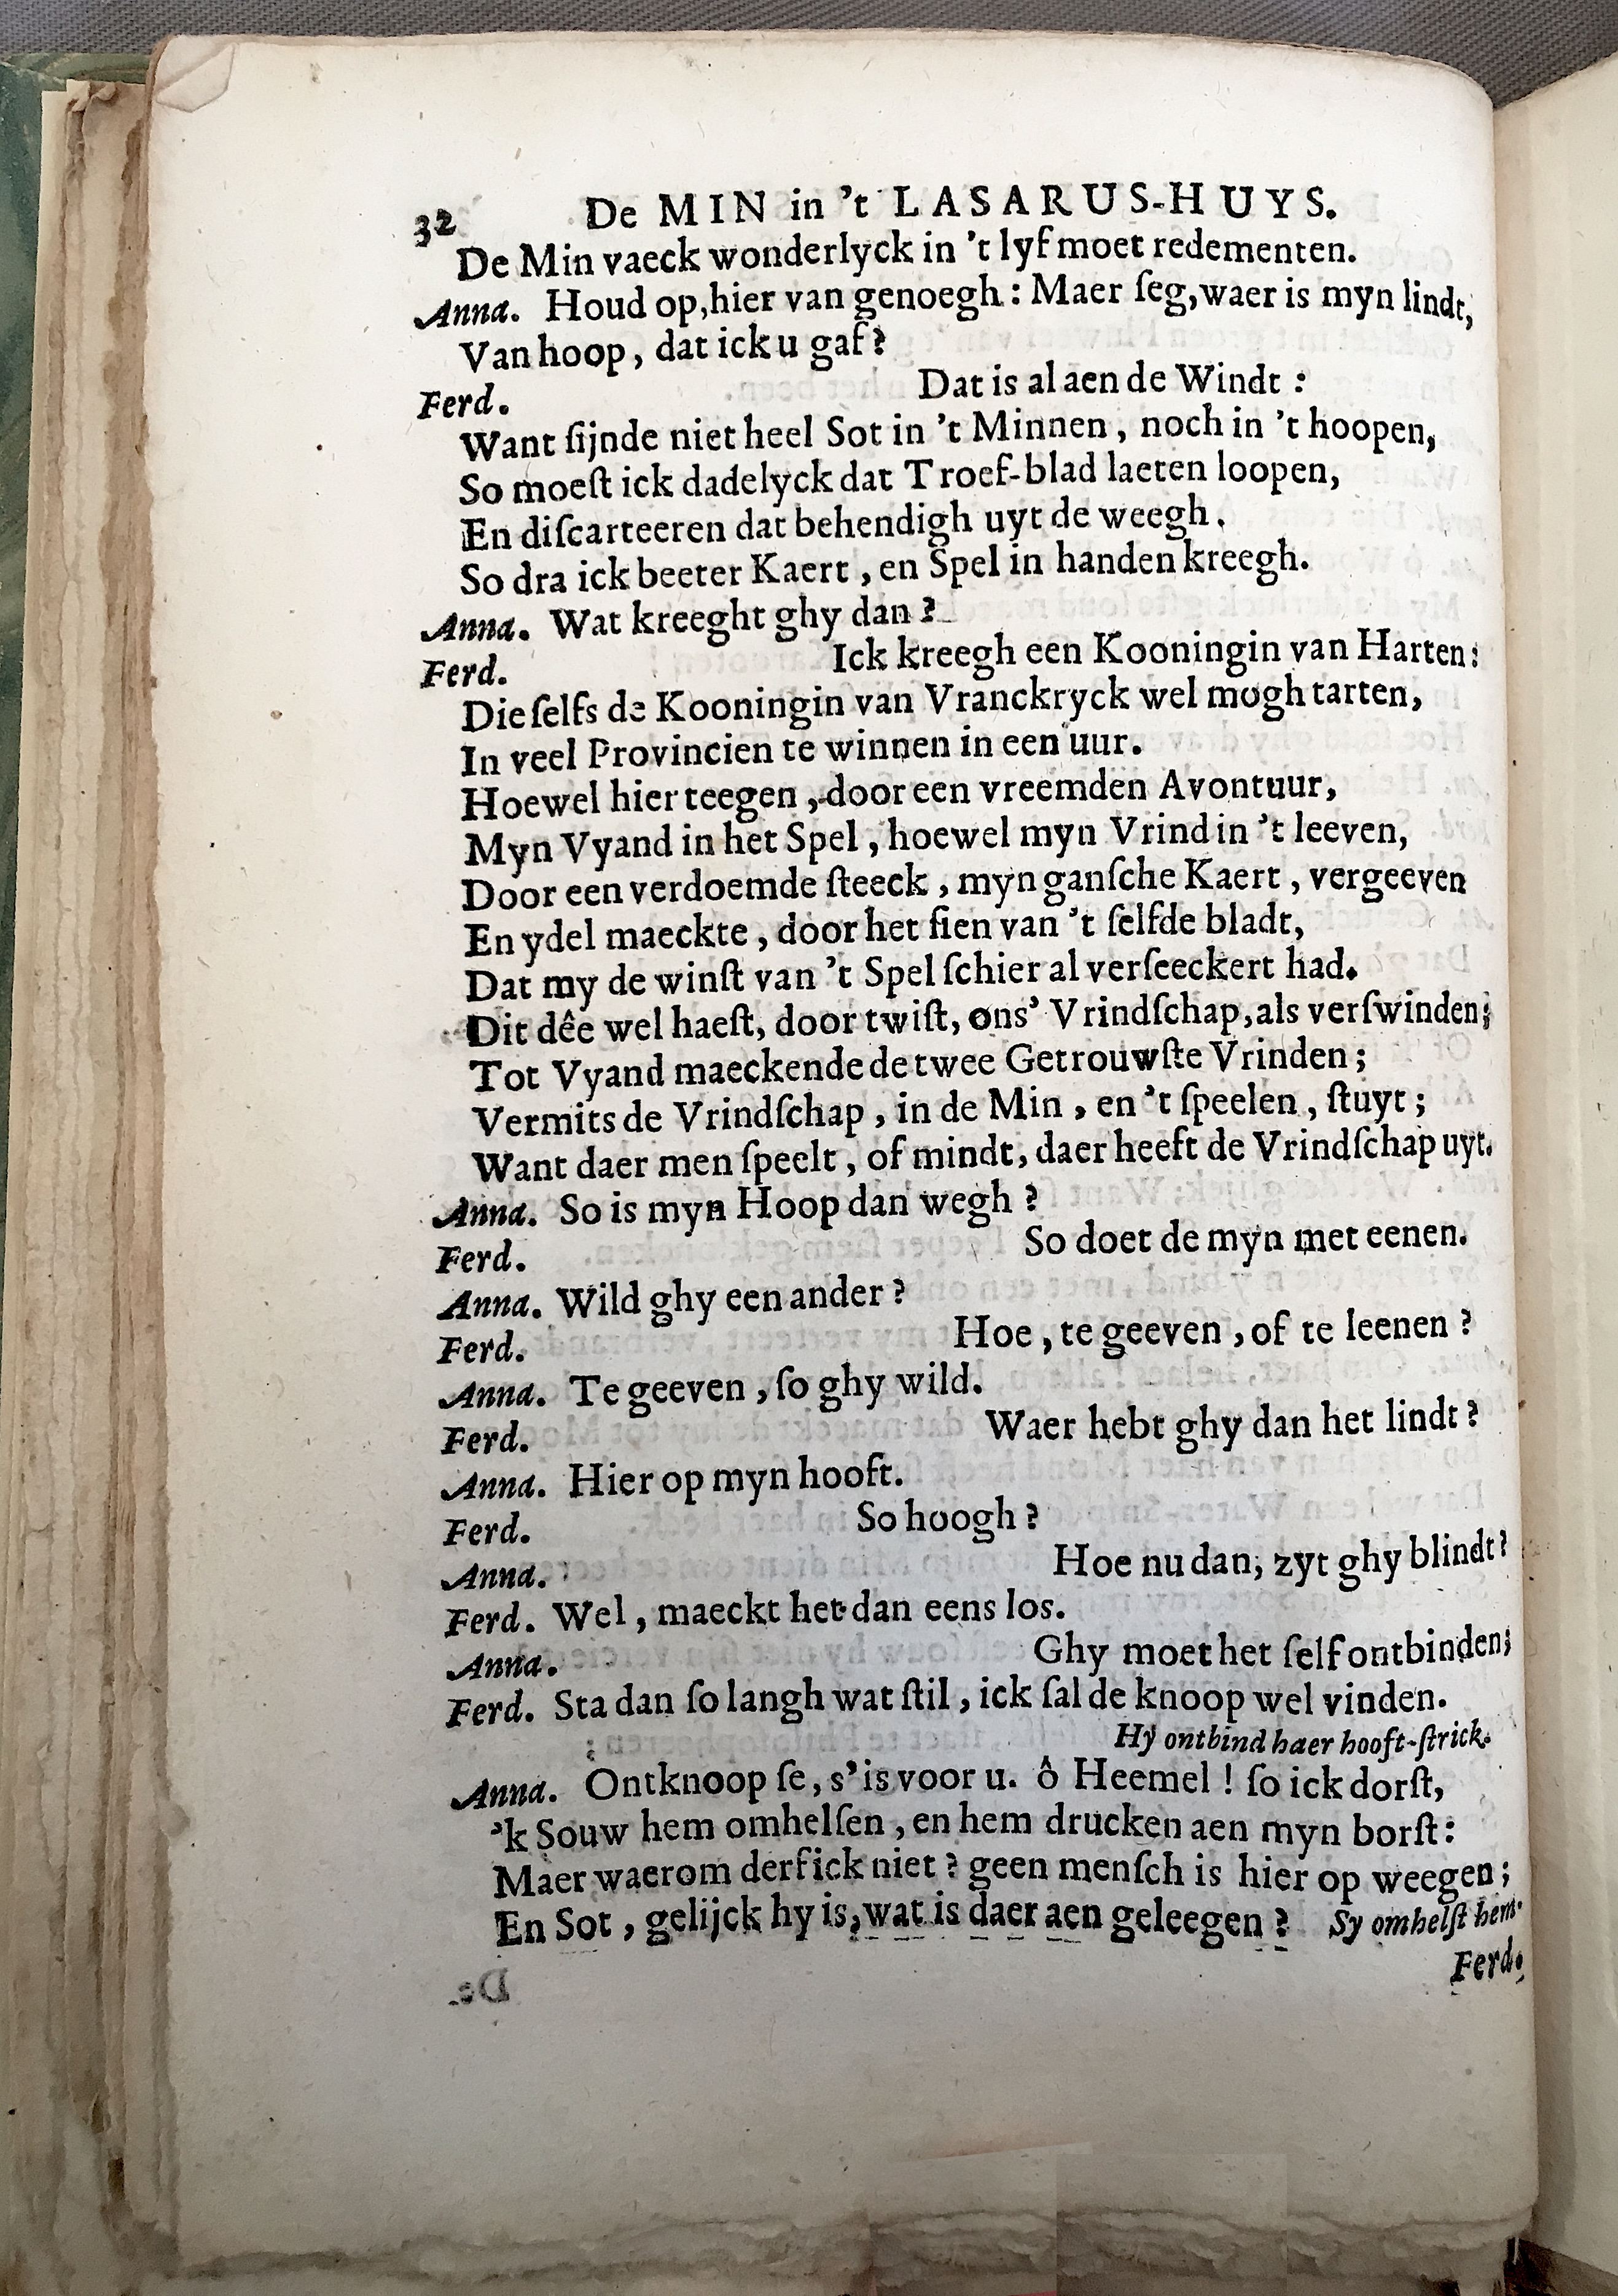 32 De MIN in 't LASARUS-HUYS.
De Min vaeck wonderlyck in 't lyf moet redementen.
Anna. Houd op, hier van genoegh: Maer ſeg, waer is myn lindt,
Van hoop, dat ick u gaf?
Ferd. Dat is al aen de Windt:
Want ſijnde niet heel Sot in 't Minnen, noch in 't hoopen,
So moeſt ick dadelyck dat Troef-blad laeten loopen,
En diſcarteeren dat behendigh uyt de weegh.
So dra ick beeter Kaert, en Spel in handen kreegh.
Anna. Wat kreeght ghy dan?
Ferd. Ick kreegh een Kooningin van Harten:
Die ſelfs de Kooningin van Vranckryck wel mogh tarten,
In veel Provincien te winnen in een uur.
Hoewel hier teegen, door een vreemden Avontuur,
Myn Vyand in het Spel, hoewel myn Vrind in 't leeven,
Door een verdoemde ſteeck, myn ganſche Kaert, vergeeven
En ydel maeckte, door het ſien van 't ſelfde bladt,
Dat my de winſt van 't Spel ſchier al verſeeckert had.
Dit dêe wel haeſt, door twiſt, ons' Vrindſchap, als verſwinden;
Tot Vyand maeckende de twee Getrouwſte Vrinden;
Vermits de Vrindſchap, in de Min, en 't ſpeelen, ſtuyt;
Want daer men ſpeelt, of mindt, daer heeft de Vrindſchap uyt.
Anna. So is myn Hoop dan wegh?
Ferd. So doet de myn met eenen.
Anna. Wild ghy een ander?
Ferd. Hoe, te geeven, of te leenen?
Anna. Te geeven, ſo ghy wild.
Ferd. Waer hebt ghy dan het lindt?
Anna. Hier op myn hooft.
Ferd. So hoogh?
Anna. Hoe nu dan, zyt ghy blindt?
Ferd. Wel, maeckt het dan eens los.
Anna. Ghy moet het ſelf ontbinden;
Ferd. Sta dan ſo langh wat ſtil, ick ſal de knoop wel vinden.
Hy ontbind haer hooft-ſtrick.
Anna. Ontknoop ſe, s' is voor u. ô Heemel! ſo ick dorſt,
'k Souw hem omhelſen, en hem drucken aen myn borſt:
Maer waerom derf ick niet? geen menſch is hier op weegen;
En Sot, gelijck hy is, wat is daer aen geleegen? Sy omhelſt hem.
Ferd.